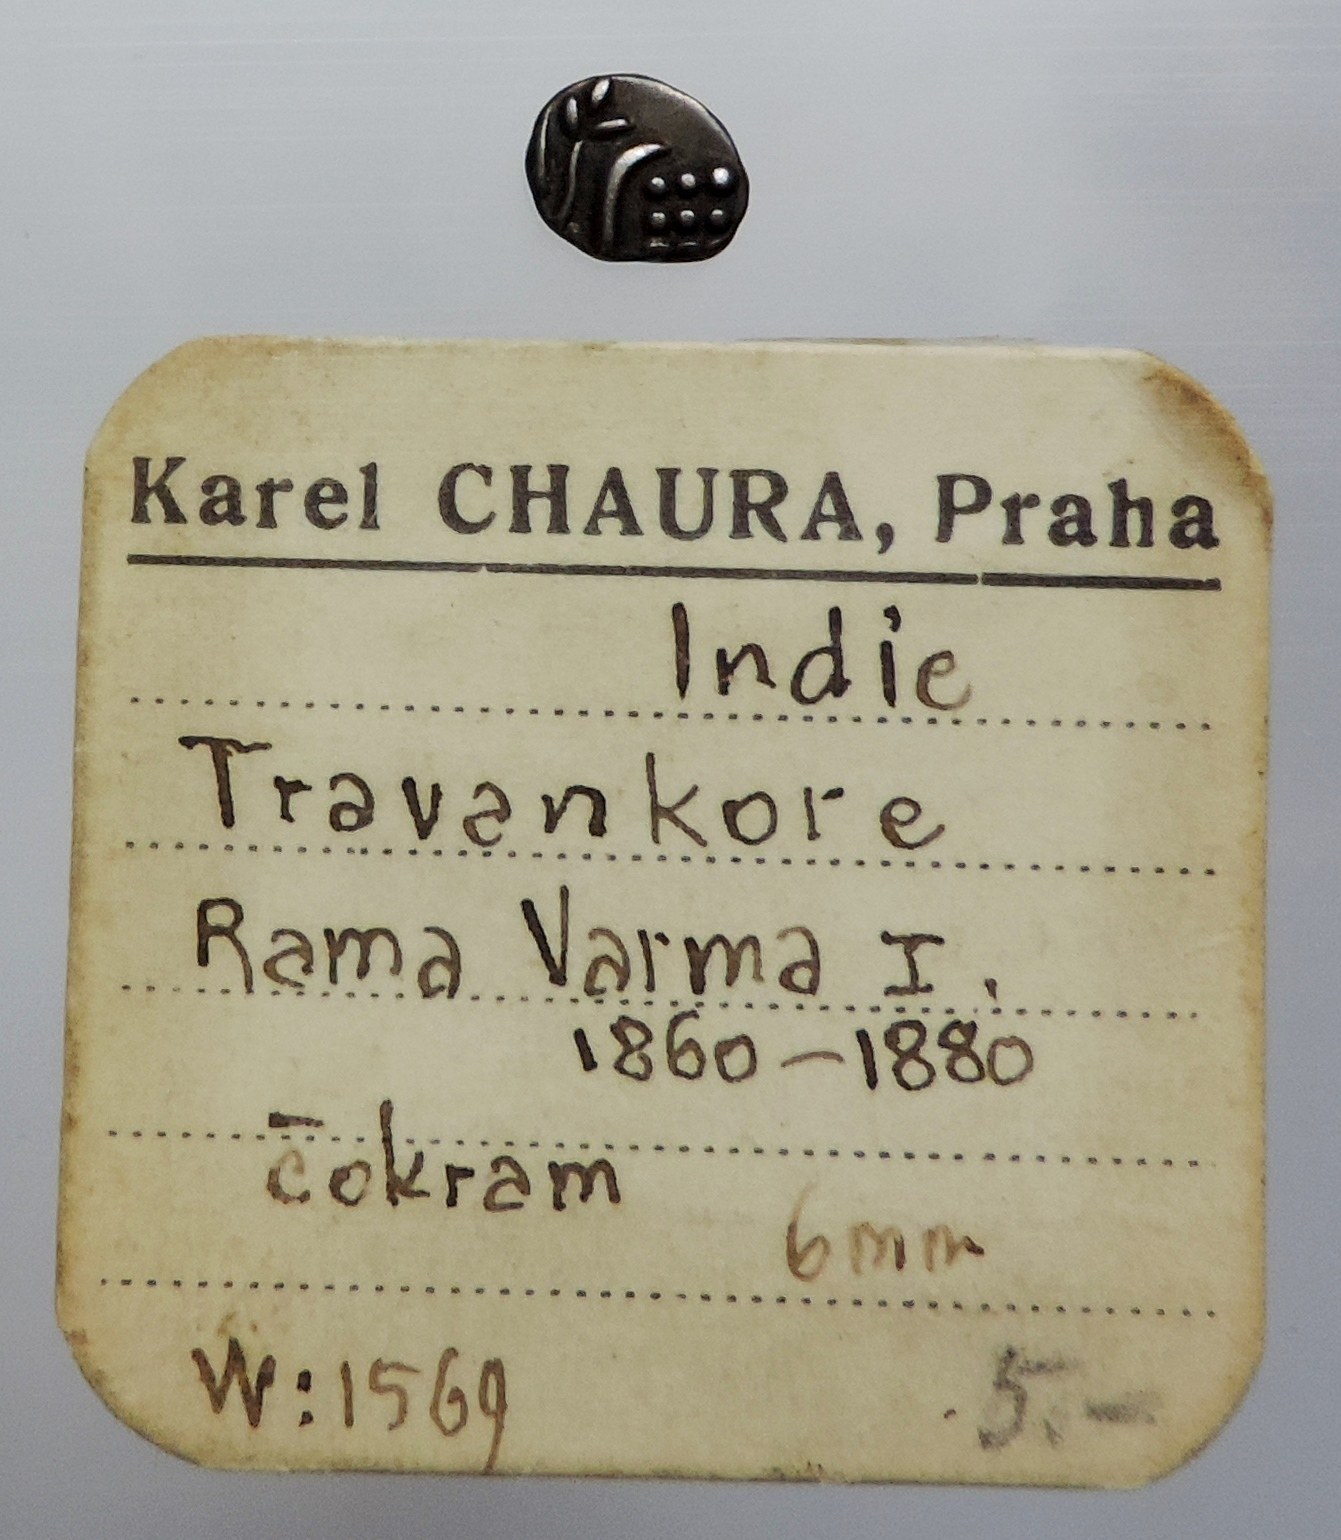 Karel CHAURA, Praha
Indie
Travankore
Rama Varma I.
1860-1880
čokram
6mm
W:1569
5.-